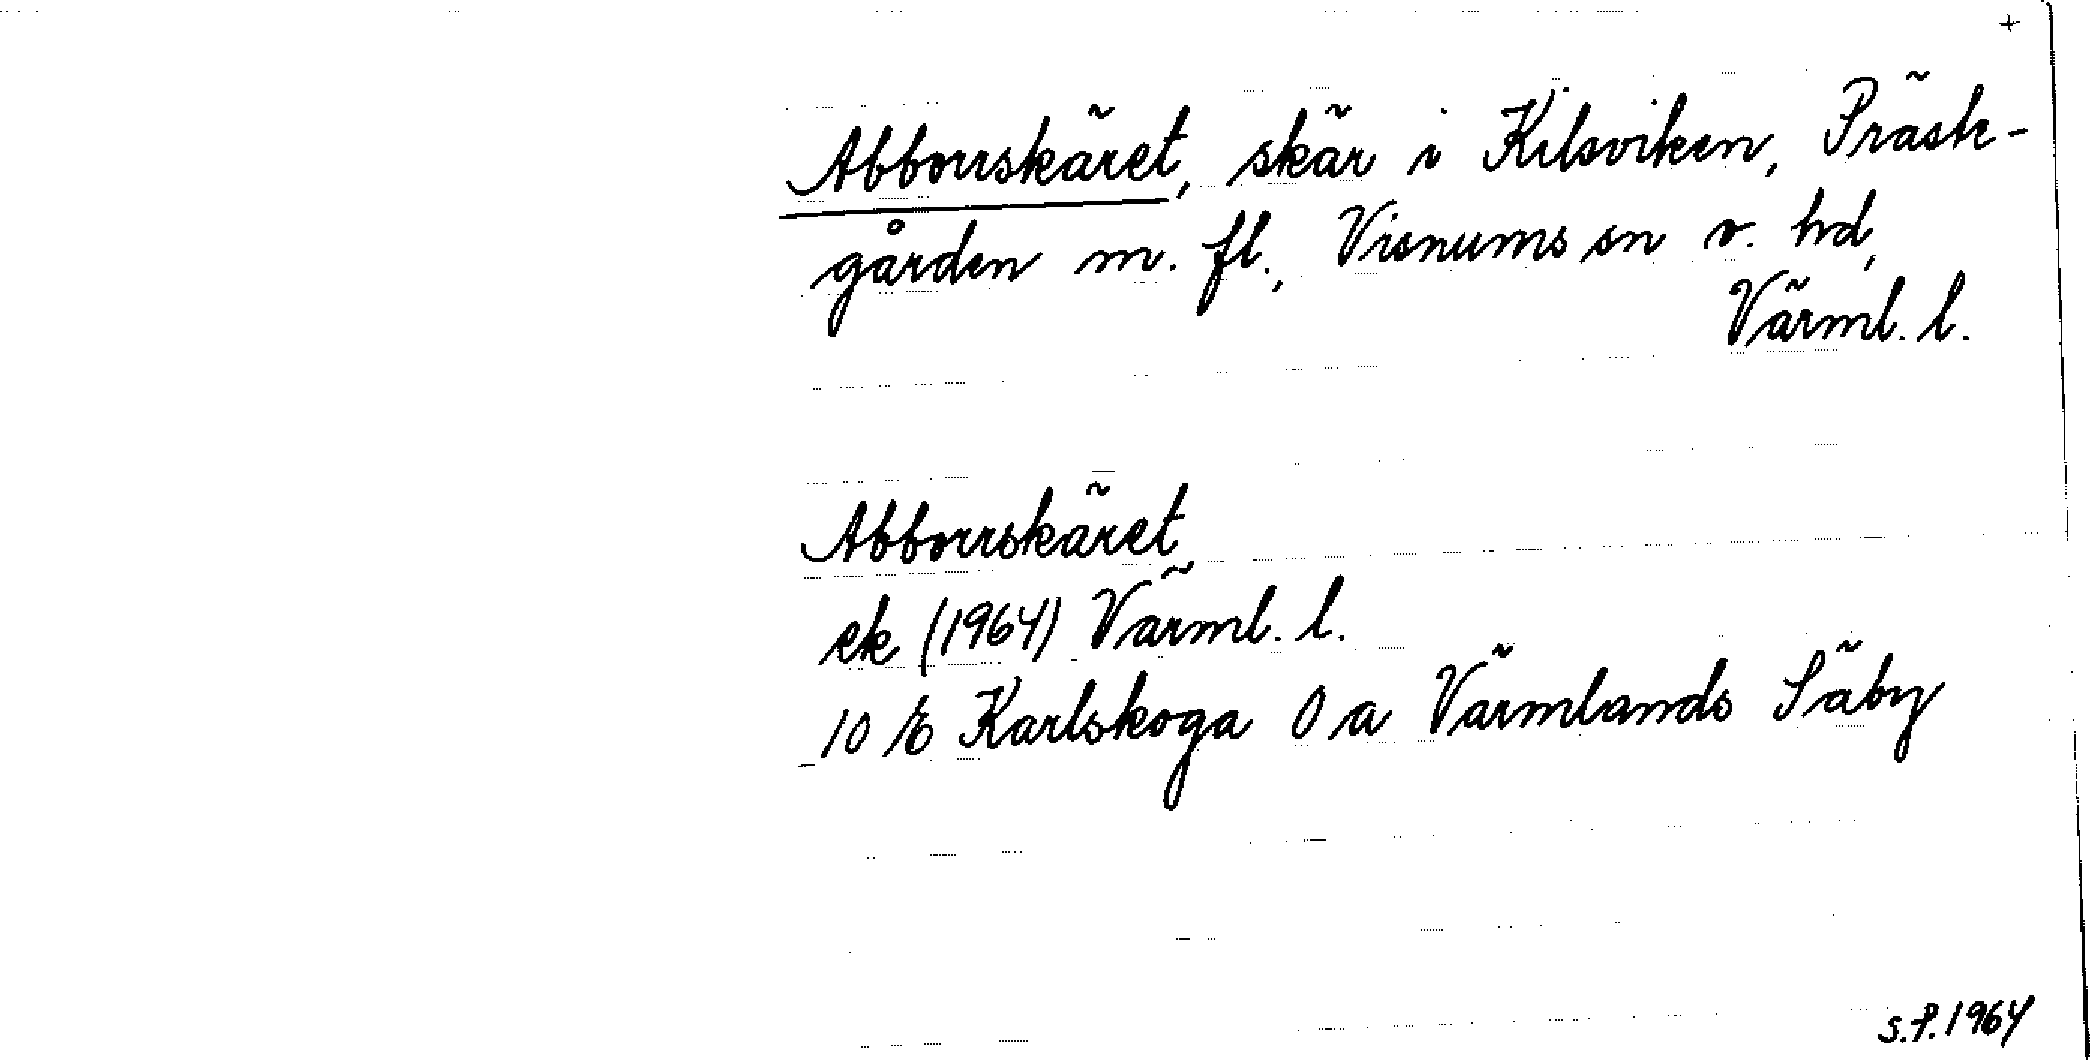 +
Abborrskäret, skär i Kilsviken, Präst-
gården m. fl., Visnums sn v. hd,
Värml. l.
Abborrskäret
ek (1964) Värml. l.
10 E Karlskoga 0 a Värmlands Säby
S.P. 1964